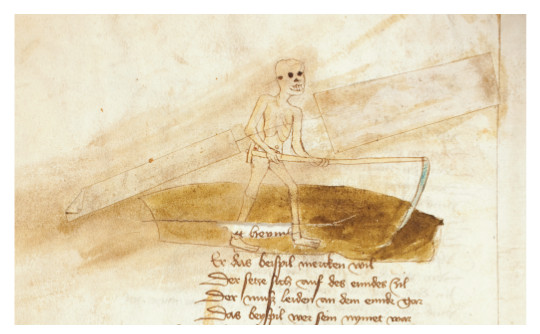 Er das beispil mercken wil
Der setze sich auf des endes zil
Der muß leiden an dem ende gar
Das beyspil wer sein nymet war